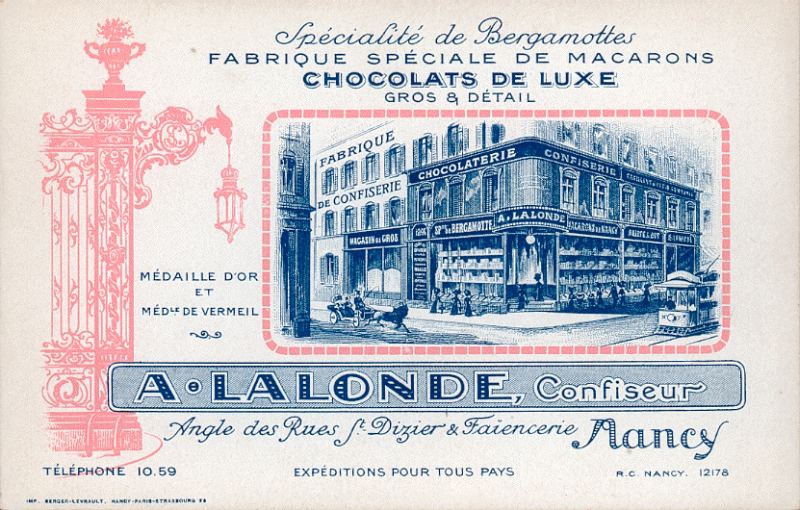 Spécialité de Bergamottes
FABRIQUE SPÉCIALE DE MACARONS
CHOCOLATS DE LUXE
GROS & DÉTAIL
FABRIQUE
DE CONFISERIE
CHOCOLATERIE
CONFISERIE
MAGASIN DE GROS
SPté DE BERGAMOTTE
A. LALONDE
MACARONS DE NANCY
MÉDAILLE D'OR
ET
MÉDLE DE VERMEIL
A. LALONDE, Confiseur
Angle des Rues St Dizier & Faïencerie Nancy
TÉLÉPHONE 10.59
EXPÉDITIONS POUR TOUS PAYS
R.C. NANCY. 12178
IMP. BERGER-LEVRAULT, NANCY-PARIS-STRASBOURG